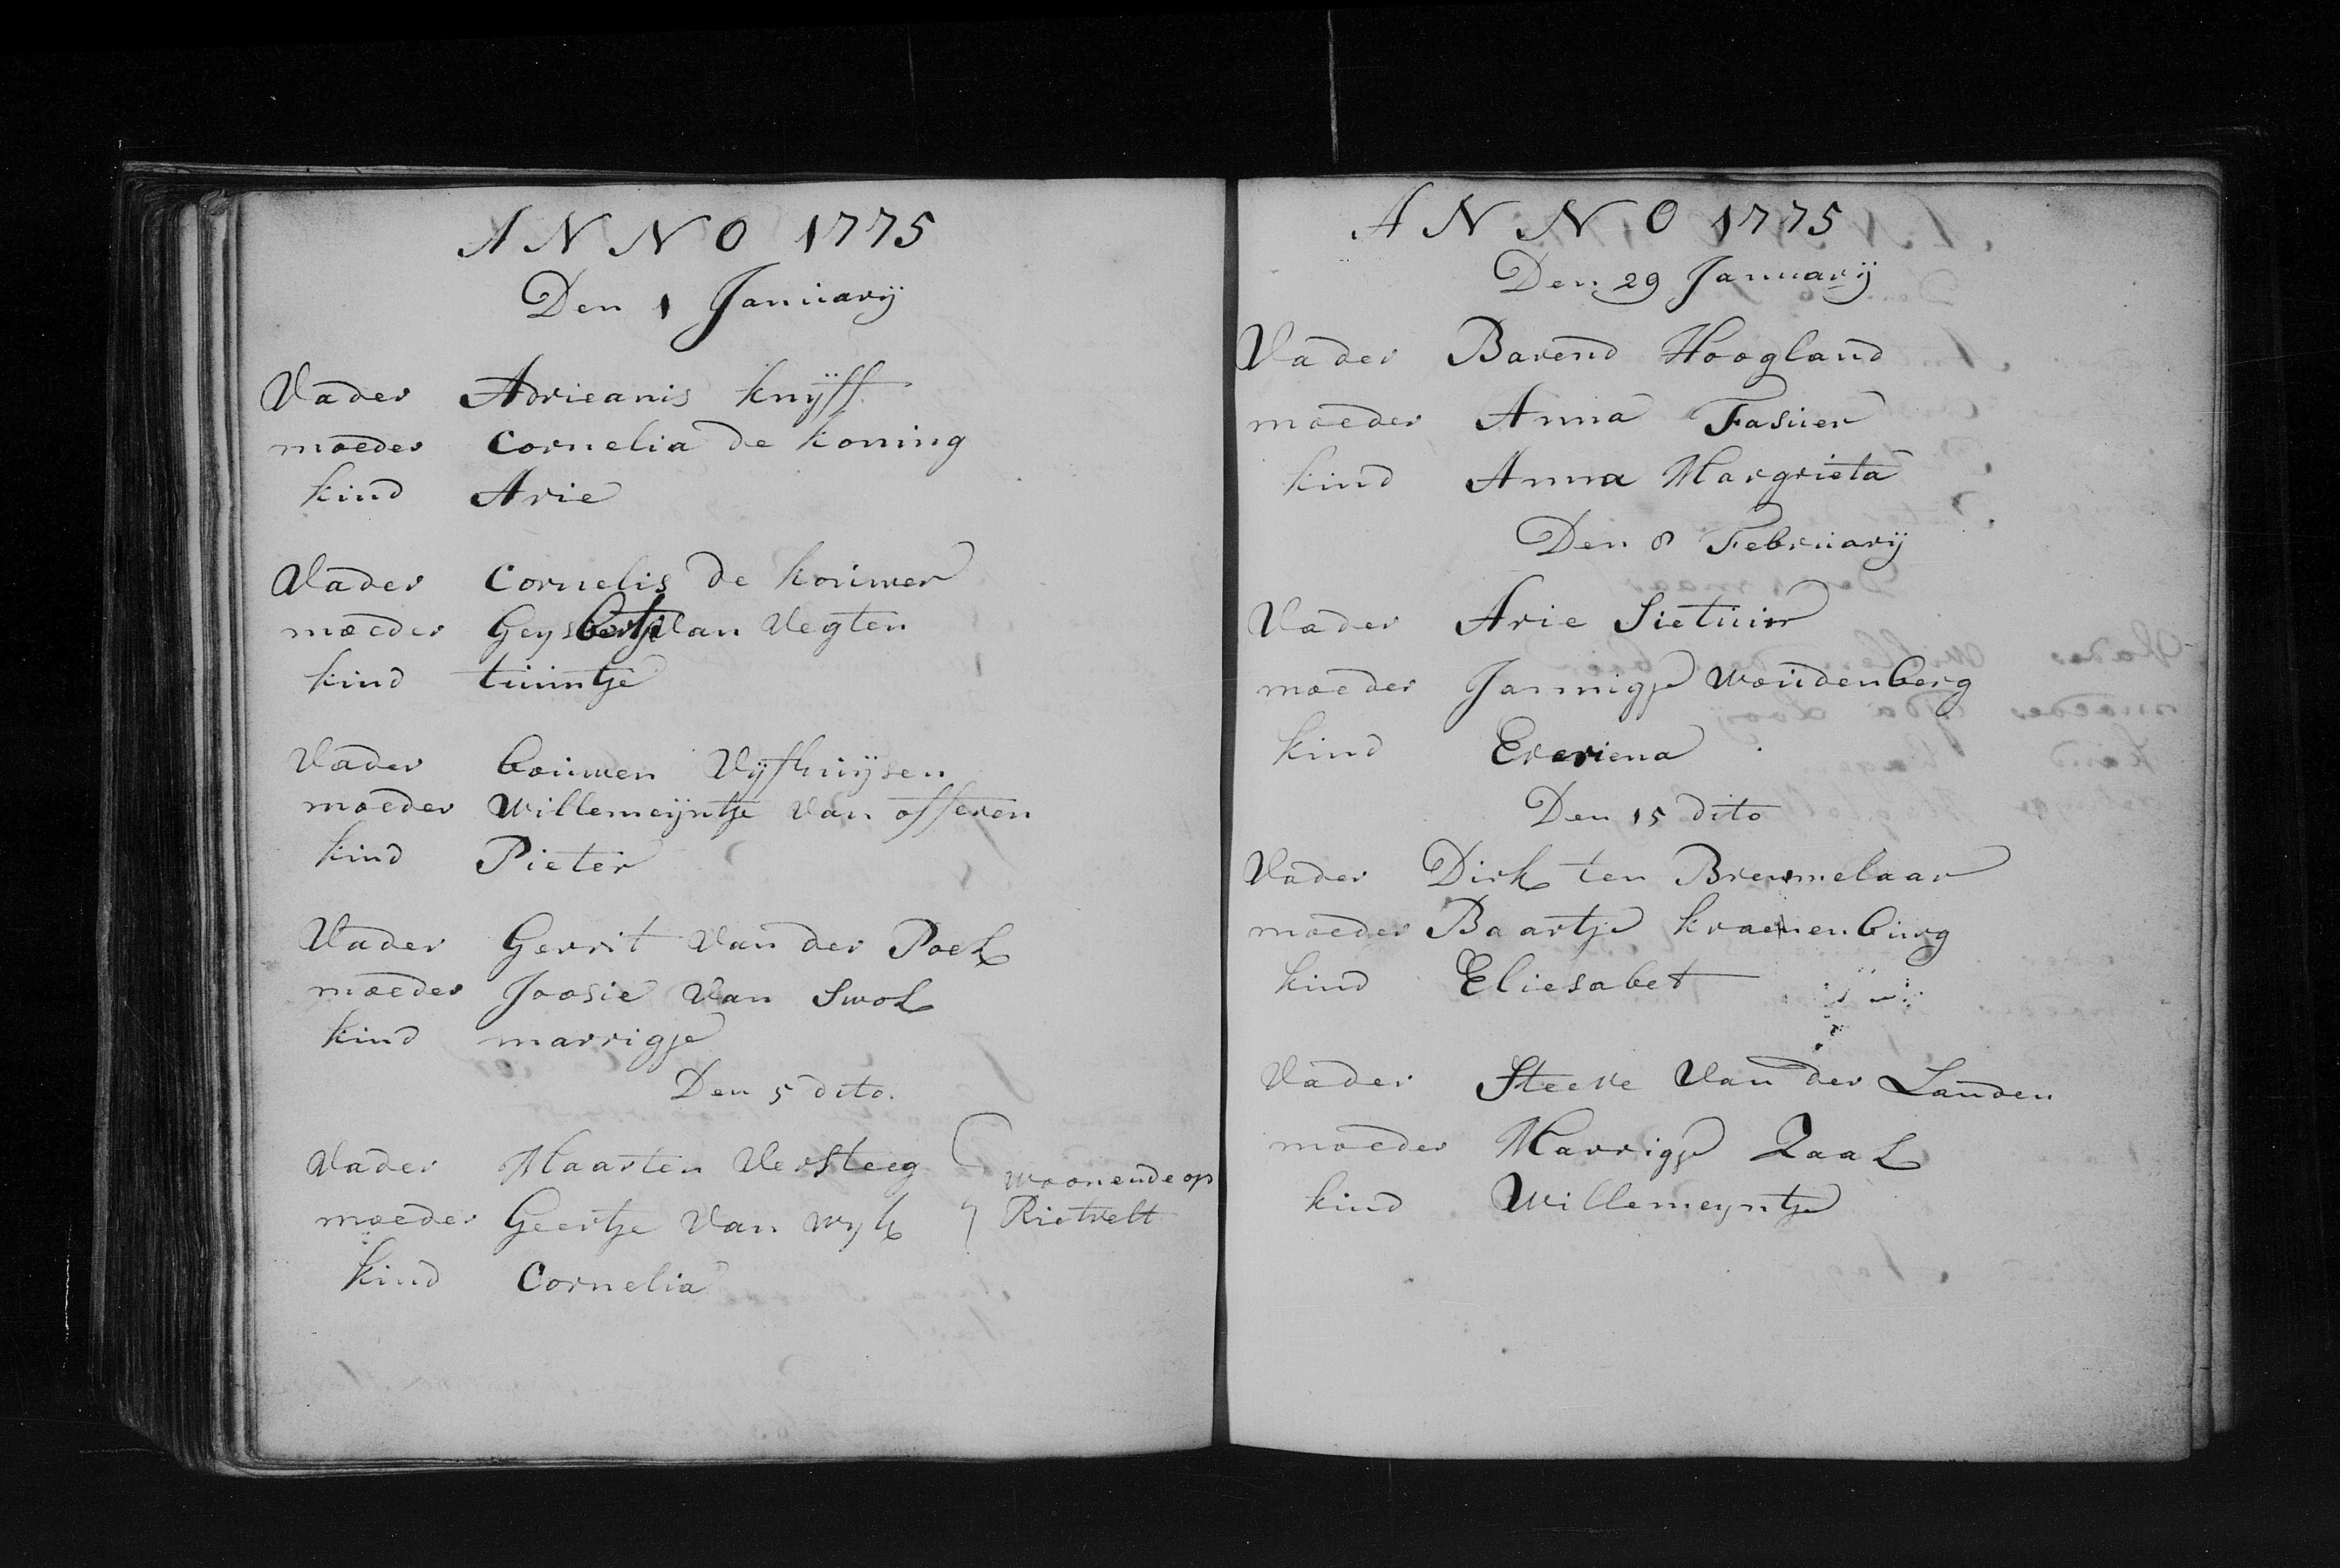 ANNO 1775
Den 1 Januarij
Vader Adrieanis knijff
moeder Cornelia de koning
kind Arie
Vader Cornelis de kouwer
moeder Geysbertje Van Vegten
kind tuintje
Vader bouwen Vijfhuijsen
moeder Willemeijntje Van offeren
kind Pieter
Vader Gerrit Van der Poel
moeder Joosie Van Swol
kind marrigje
Den 5 dito.
Vader Maarten Versteeg
moeder Geertje Van wyk
woonende op
Rietvelt
kind Cornelia
ANNO 1775
Den 29 Januarij
Vader Barend Hoogland
moeder Anna Fasuer
kind Anna Margrieta
Den 8 Februarij
Vader Arie
moeder Jannigje Woudenberg
kind Everiena
Den 15 dito
Vader Dirk ten Bremmelaar
moeder Baartje kranenburg
kind Eliesabet
Vader Steeve Van der Landen
moeder Marrigje Zaal
kind Willemeyntje